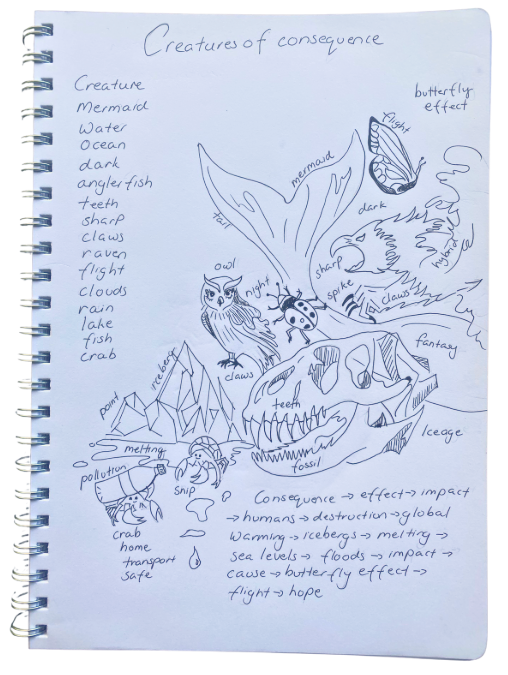 Creatures of consequence
Creature
Mermaid
Water
Ocean
dark
anglerfish
teeth
sharp
claws
raven
flight
clouds
rain
lake
fish
crab
butterfly
effect
flight
mermaid
tail
dark
hybrid
sharp
spike
claws
owl
night
claws
fantasy
iceberg
point
teeth
Iceage
melting
fossil
pollution
snip
crab
home
transport
safe
Consequence → effect → impact
→ humans → destruction → global
warming → icebergs → melting →
sea levels → floods → impact →
cause → butterfly effect →
flight → hope